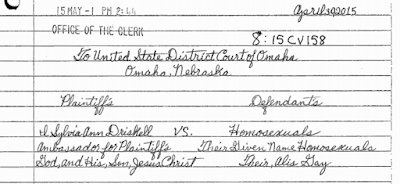 15 MAY -1 PM 2:44
April 30 2015
OFFICE OF THE CLERK
8:15CV158
To United State District Court of Omaha
Omaha, Nebraska
Plaintiff's Defendant's
I Sylvia Ann Driskell VS. Homosexuals
Ambassador for Plaintiffs Their Given Name Homosexuals
God, and His, Son, Jesus Christ Their, Alis Gay